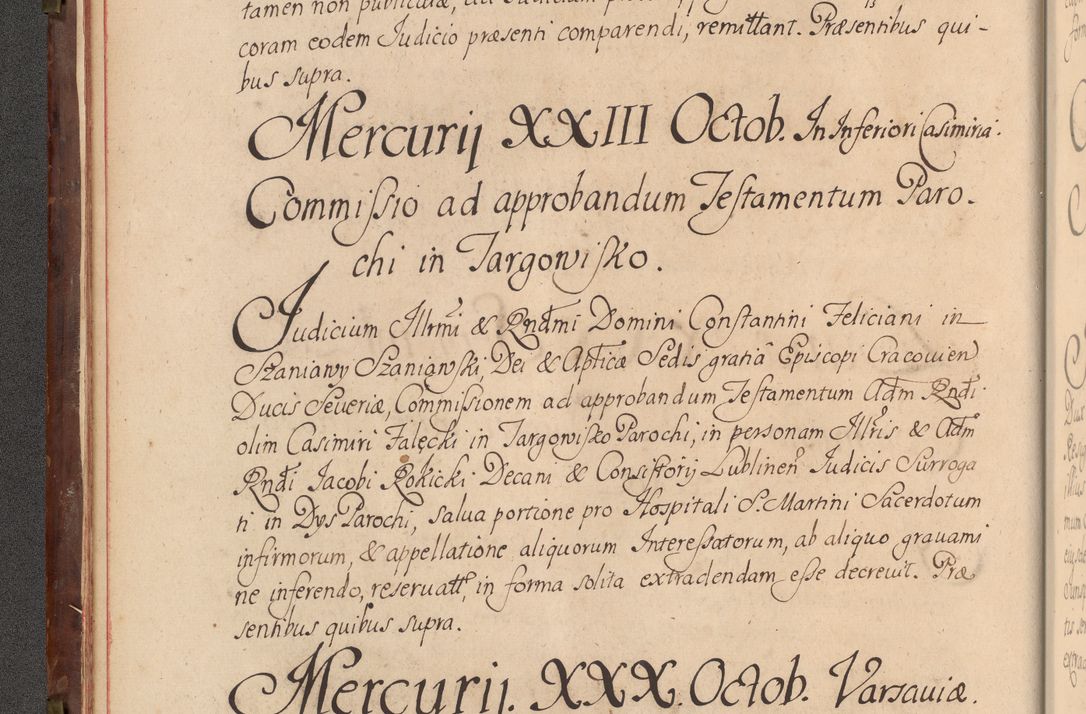 tamen non publicatæ, ad Judicium
coram eodem Judicio præsenti comparendi, remittant. Præsentibus qui-
bus supra.
Mercurij XXIII Octob. In Inferiori Casimiria.
Commissio ad approbandum Testamentum Paro-
chi in Targowisko.
Judicium Illrmi & Rndmi Domini Constantini Feliciani in
Szaniawy Szaniawski, Dei & Apticæ Sedis gratiâ Episcopi Cracouien
Ducis Seueriæ, Commissionem ad approbandum Testamentum Adm Rndi
olim Casimiri Falęcki in Targowisko Parochi, in personam Illris & Adm
Rndi Jacobi Rokicki Decani & Consistorij Lublinen Judicis Surroga
ti in Dys Parochi, salua portione pro Hospitali S. Martini Sacerdotum
infirmorum, & appellatione aliquorum Interessatorum, ab aliquo grauami
ne inferendo, reseruatt, in forma solita extradendam esse decreuit. Præ
sentibus quibus supra.
Mercurij. XXX. Octob. Varsauiæ.